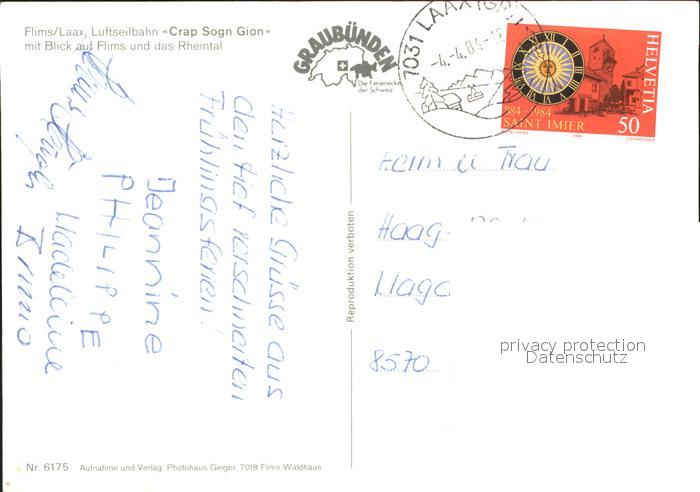 Flims/Laax, Luftseilbahn «Crap Sogn Gion»
mit Blick auf Flims und das Rheintal
GRAUBÜNDEN
Die Ferienecke
der Schweiz
7031 LAAX (GR)
-4.-4.84-12
HELVETIA
884-1984
SAINT-IMIER
50
1984
COURVOISIER
Herzliche Grüsse aus
den tief verschneiten
Frühlingsferien!
Jeannine
PHILIPPE
Madeleine
Bruno
Herrn u Frau
Haag-
8570
Reproduktion verboten
privacy protection
Datenschutz
Nr. 6175 Aufnahme und Verlag: Photohaus Geiger, 7018 Flims-Waldhaus